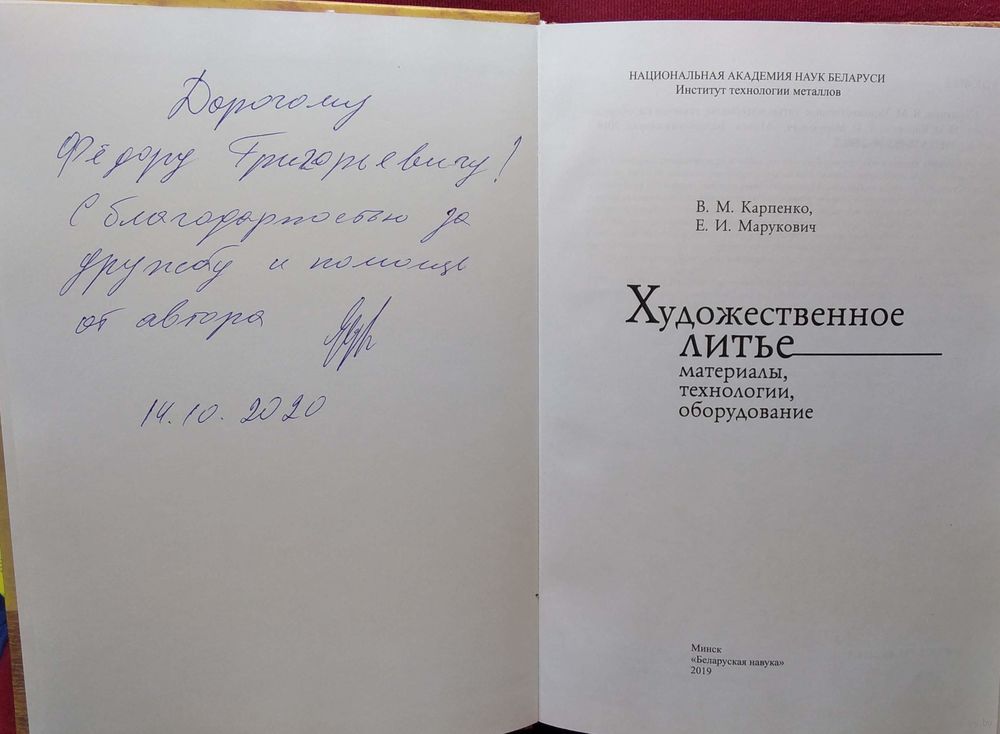 Дорогому
Фёдору Григорьевичу!
С благодарностью за
дружбу и помощь
от автора
14.10.2020
НАЦИОНАЛЬНАЯ АКАДЕМИЯ НАУК БЕЛАРУСИ
Институт технологии металлов
В. М. Карпенко,
Е. И. Марукович
Художественное
литье
материалы,
технологии,
оборудование
Минск
«Беларуская навука»
2019